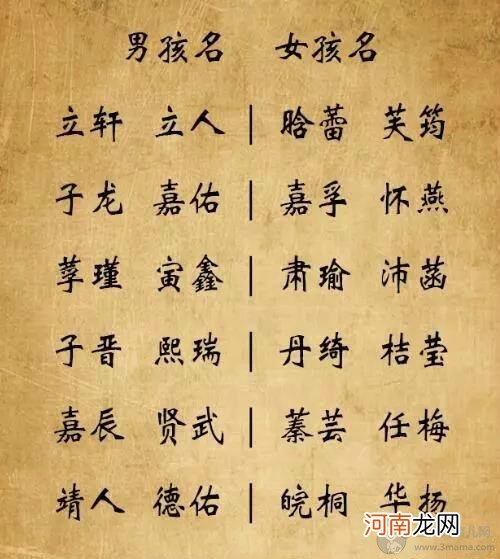 男孩名 女孩名
立轩 立人 | 晗蕾 芙筠
子龙 嘉佑 | 嘉孚 怀燕
莩瑾 寅鑫 | 肃瑜 沛菡
子晋 熙瑞 | 丹绮 桔莹
嘉辰 贤武 | 蓁芸 任梅
靖人 德佑 | 皖桐 华扬
河南龙网
www.3mama.com